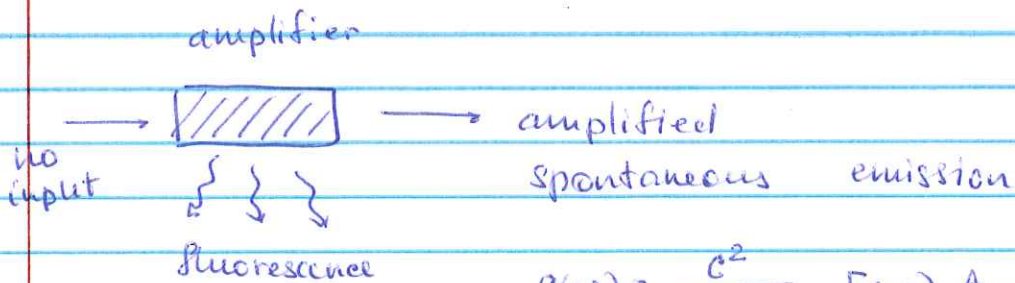 amplifier
no
input
amplified
spontaneous emission
fluorescence
c²